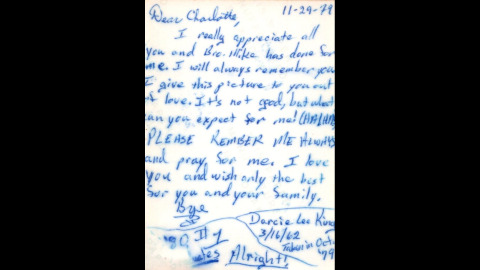 Dear Charlotte, 11-29-79
I really appreciate all
you and Bro. Mike has done for
me. I will always remember you
I give this picture to you out
of love. It's not good, but what
can you expect for me! (HA!HA!)
PLEASE REMBER ME ALWAYS
and pray, for me. I love
you and wish only the best
for you and your family.
Bye
Darcie Lee King
3/16/62
Taken in Oct.
79
II 7
Alright!